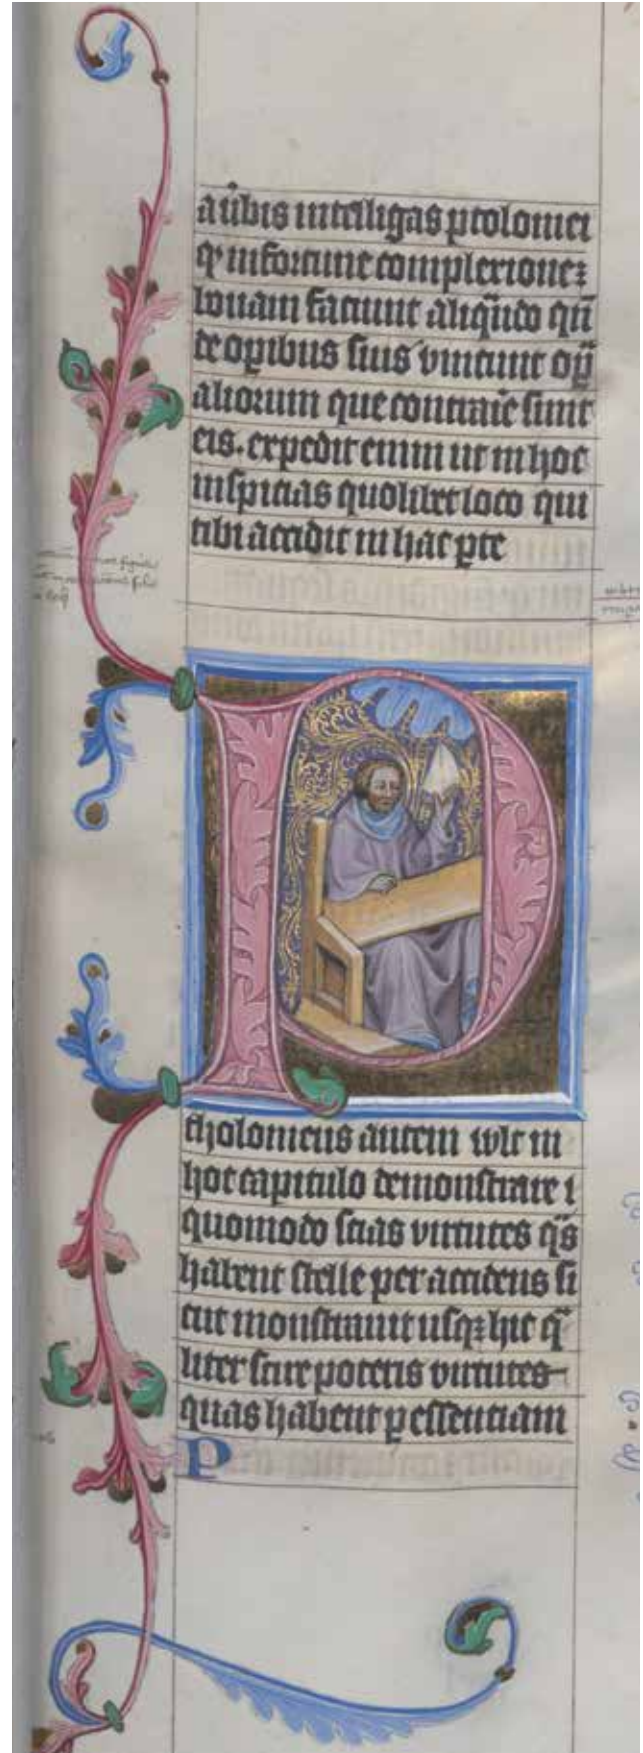 a ūbis intelligas ptolomei
infortune complexione
bonam faciunt aliqn̄do qn̄
de opibus suis vincunt op̄
aliorum que contrarie sunt
eis. expedit enim ut in hoc
inspicias quolibet loco qui
tibi accidit in hac pte
P
tholomeus autem vult in
hoc capitulo demonstrare
quomodo scias virtutes qs̄
habent stelle per accidens si
cut monstrauit usqȝ huc q̄
liter scire poteris virtutes
quas habent p essentiam
P